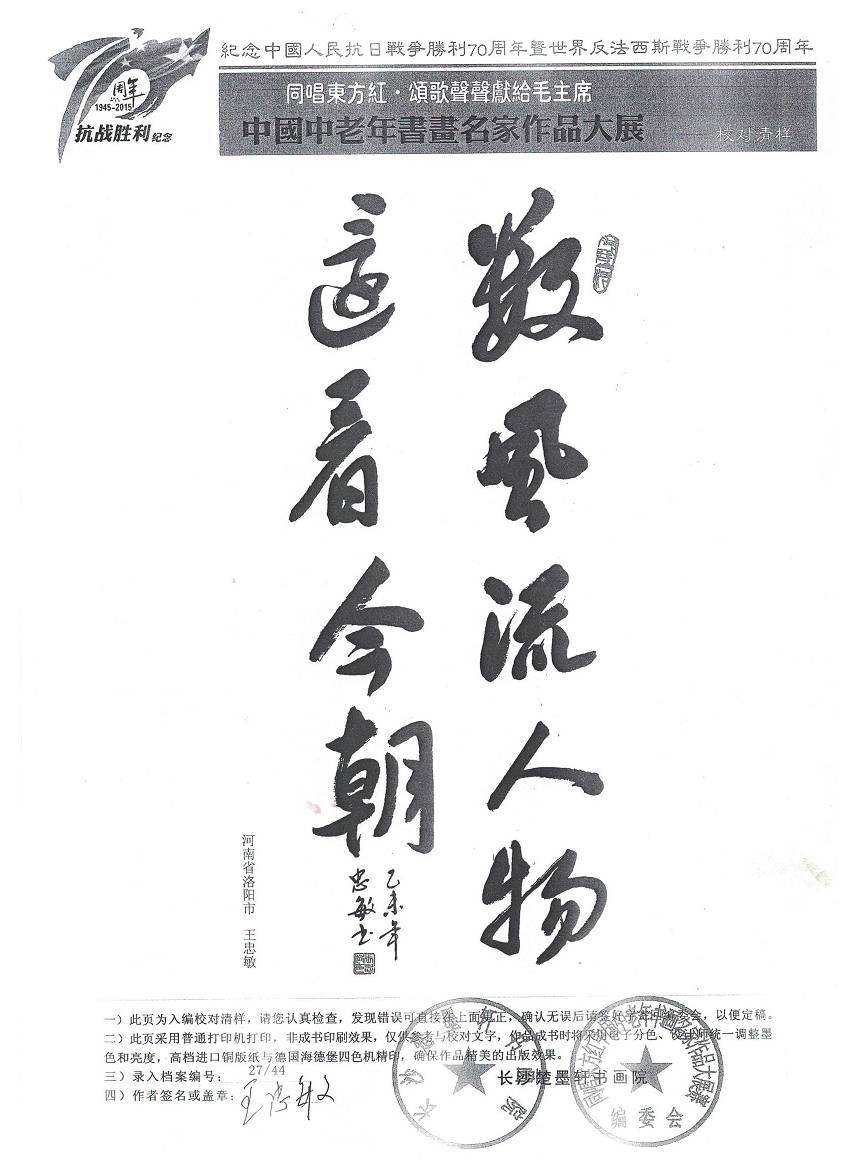 紀念中國人民抗日戰爭勝利70周年暨世界反法西斯戰爭勝利70周年
周年
1945-2015
抗战胜利纪念
同唱東方紅·頌歌聲聲獻給毛主席
中國中老年書畫名家作品大展
校对清样
數風流人物
還看今朝
乙未年
忠敏书
河南省洛阳市 王忠敏
一）此页为入编校对清样，请您认真检查，发现错误可直接在上面更正，确认无误后请签好字寄回编委会，以便定稿。
二）此页采用普通打印机打印，非成书印刷效果，仅供参考与校对文字，作品成书时将采用电子分色、设计师统一调整墨
色和亮度，高档进口铜版纸与德国海德堡四色机精印，确保作品精美的出版效果。
三）录入档案编号： 27/44
长沙楚墨轩书画院
四）作者签名或盖章：王忠敏
编委会